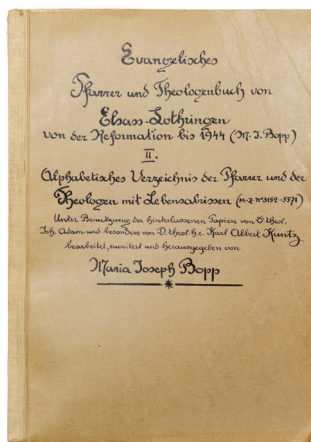 Evangelisches
Pfarrer und Theologenbuch von
Elsass-Lothringen
von der Reformation bis 1944 (M. J. Bopp)
II.
Alphabetisches Verzeichnis der Pfarrer und der
Theologen mit Lebensabrissen (M-Z N°3152-5571)
Unter Benutzung der hinterlassenen Papiere von D. theol.
Joh. Adam und besonders von D. theol. h. c. Karl Albert Kuntz
bearbeitet, erweitert und herausgegeben von
Maria Joseph Bopp